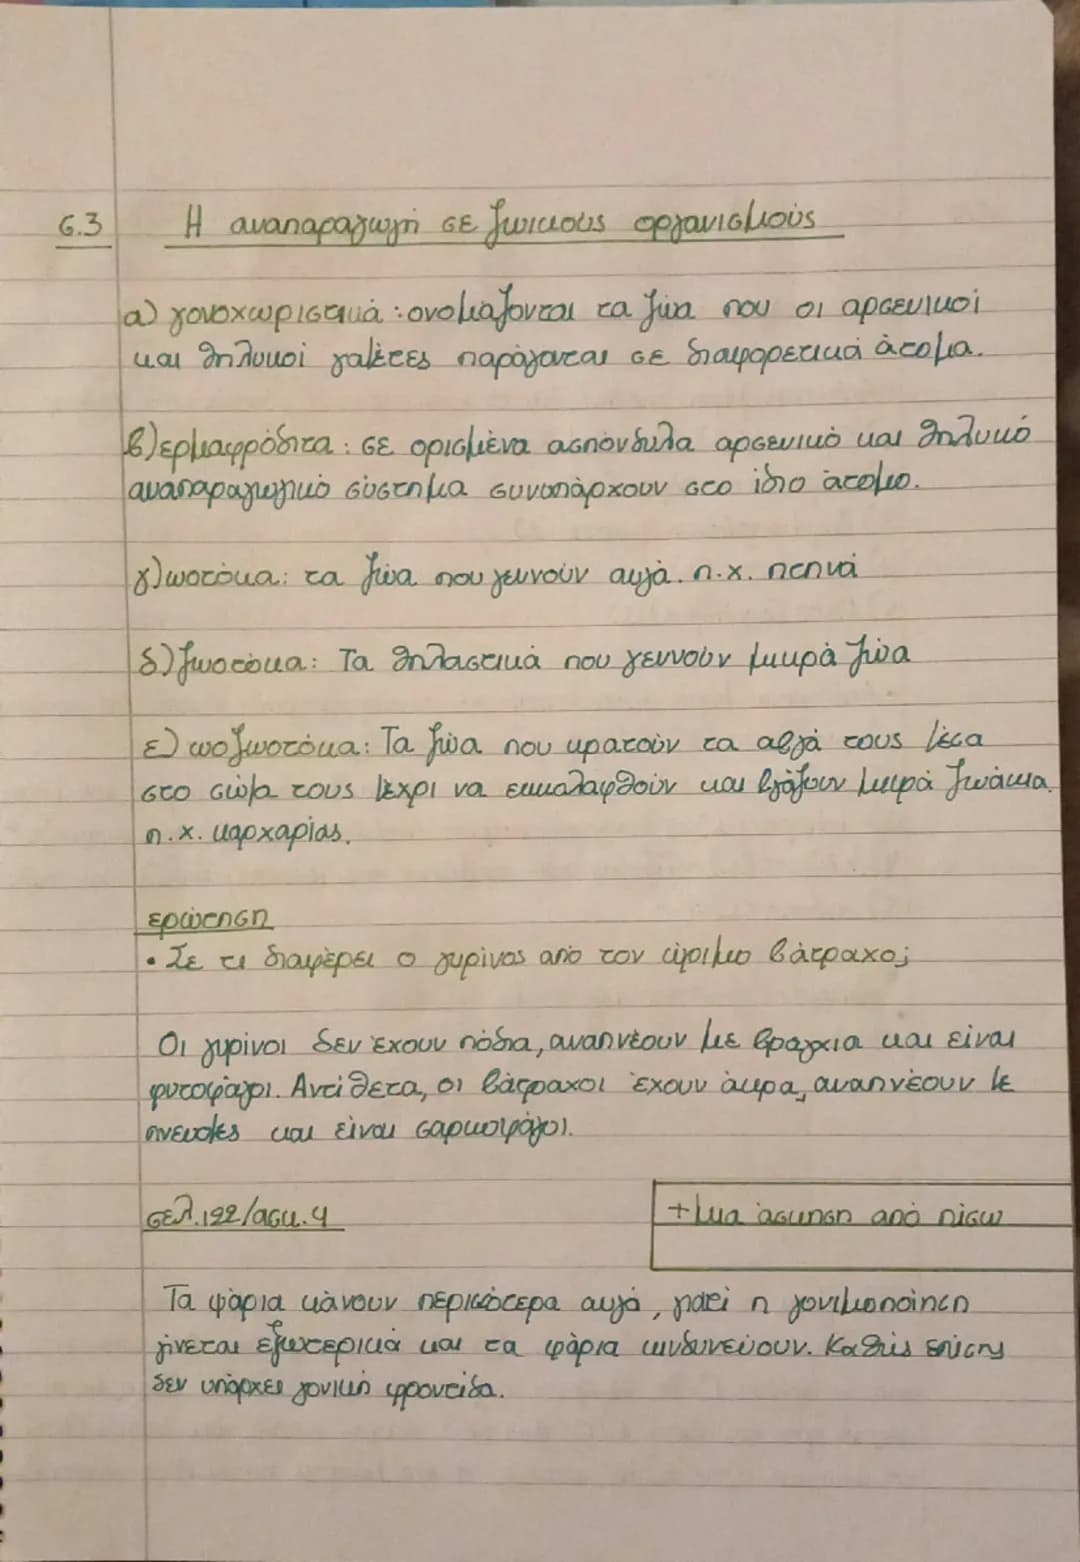 6.3 Η αναπαραγωγή σε ζωικούς οργανισμούς
α) γονοχωριστικά: ονομάζονται τα ζώα που οι αρσενικοί
και θηλυκοί γαμέτες παράγονται σε διαφορετικά άτομα.
β) ερμαφρόδιτα: σε ορισμένα ασπόνδυλα αρσενικό και θηλυκό
αναπαραγωγικό σύστημα συνυπάρχουν στο ίδιο άτομο.
γ) ωοτόκα: τα ζώα που γεννούν αυγά. π.χ. πτηνά
δ) ζωοτόκα: Τα θηλαστικά που γεννούν μικρά ζώα
ε) ωοζωοτόκα: Τα ζώα που κρατούν τα αβγά τους μέσα
στο σώμα τους μέχρι να εκκολαφθούν και βγάζουν μικρά ζωάκια.
π.χ. καρχαρίας.
ερώτηση
• Σε τι διαφέρει ο γυρίνος από τον ώριμο βάτραχο;
Οι γυρίνοι δεν έχουν πόδια, αναπνέουν με βράγχια και είναι
φυτοφάγοι. Αντίθετα, οι βάτραχοι έχουν άκρα, αναπνέουν με
πνεύμονες και είναι σαρκοφάγοι.
σελ.122/ασκ.4
+μια άσκηση από πίσω
Τα ψάρια κάνουν περισσότερα αυγά, γιατί η γονιμοποίηση
γίνεται εξωτερικά και τα ψάρια κινδυνεύουν. Καθώς επίσης
δεν υπάρχει γονική φροντίδα.